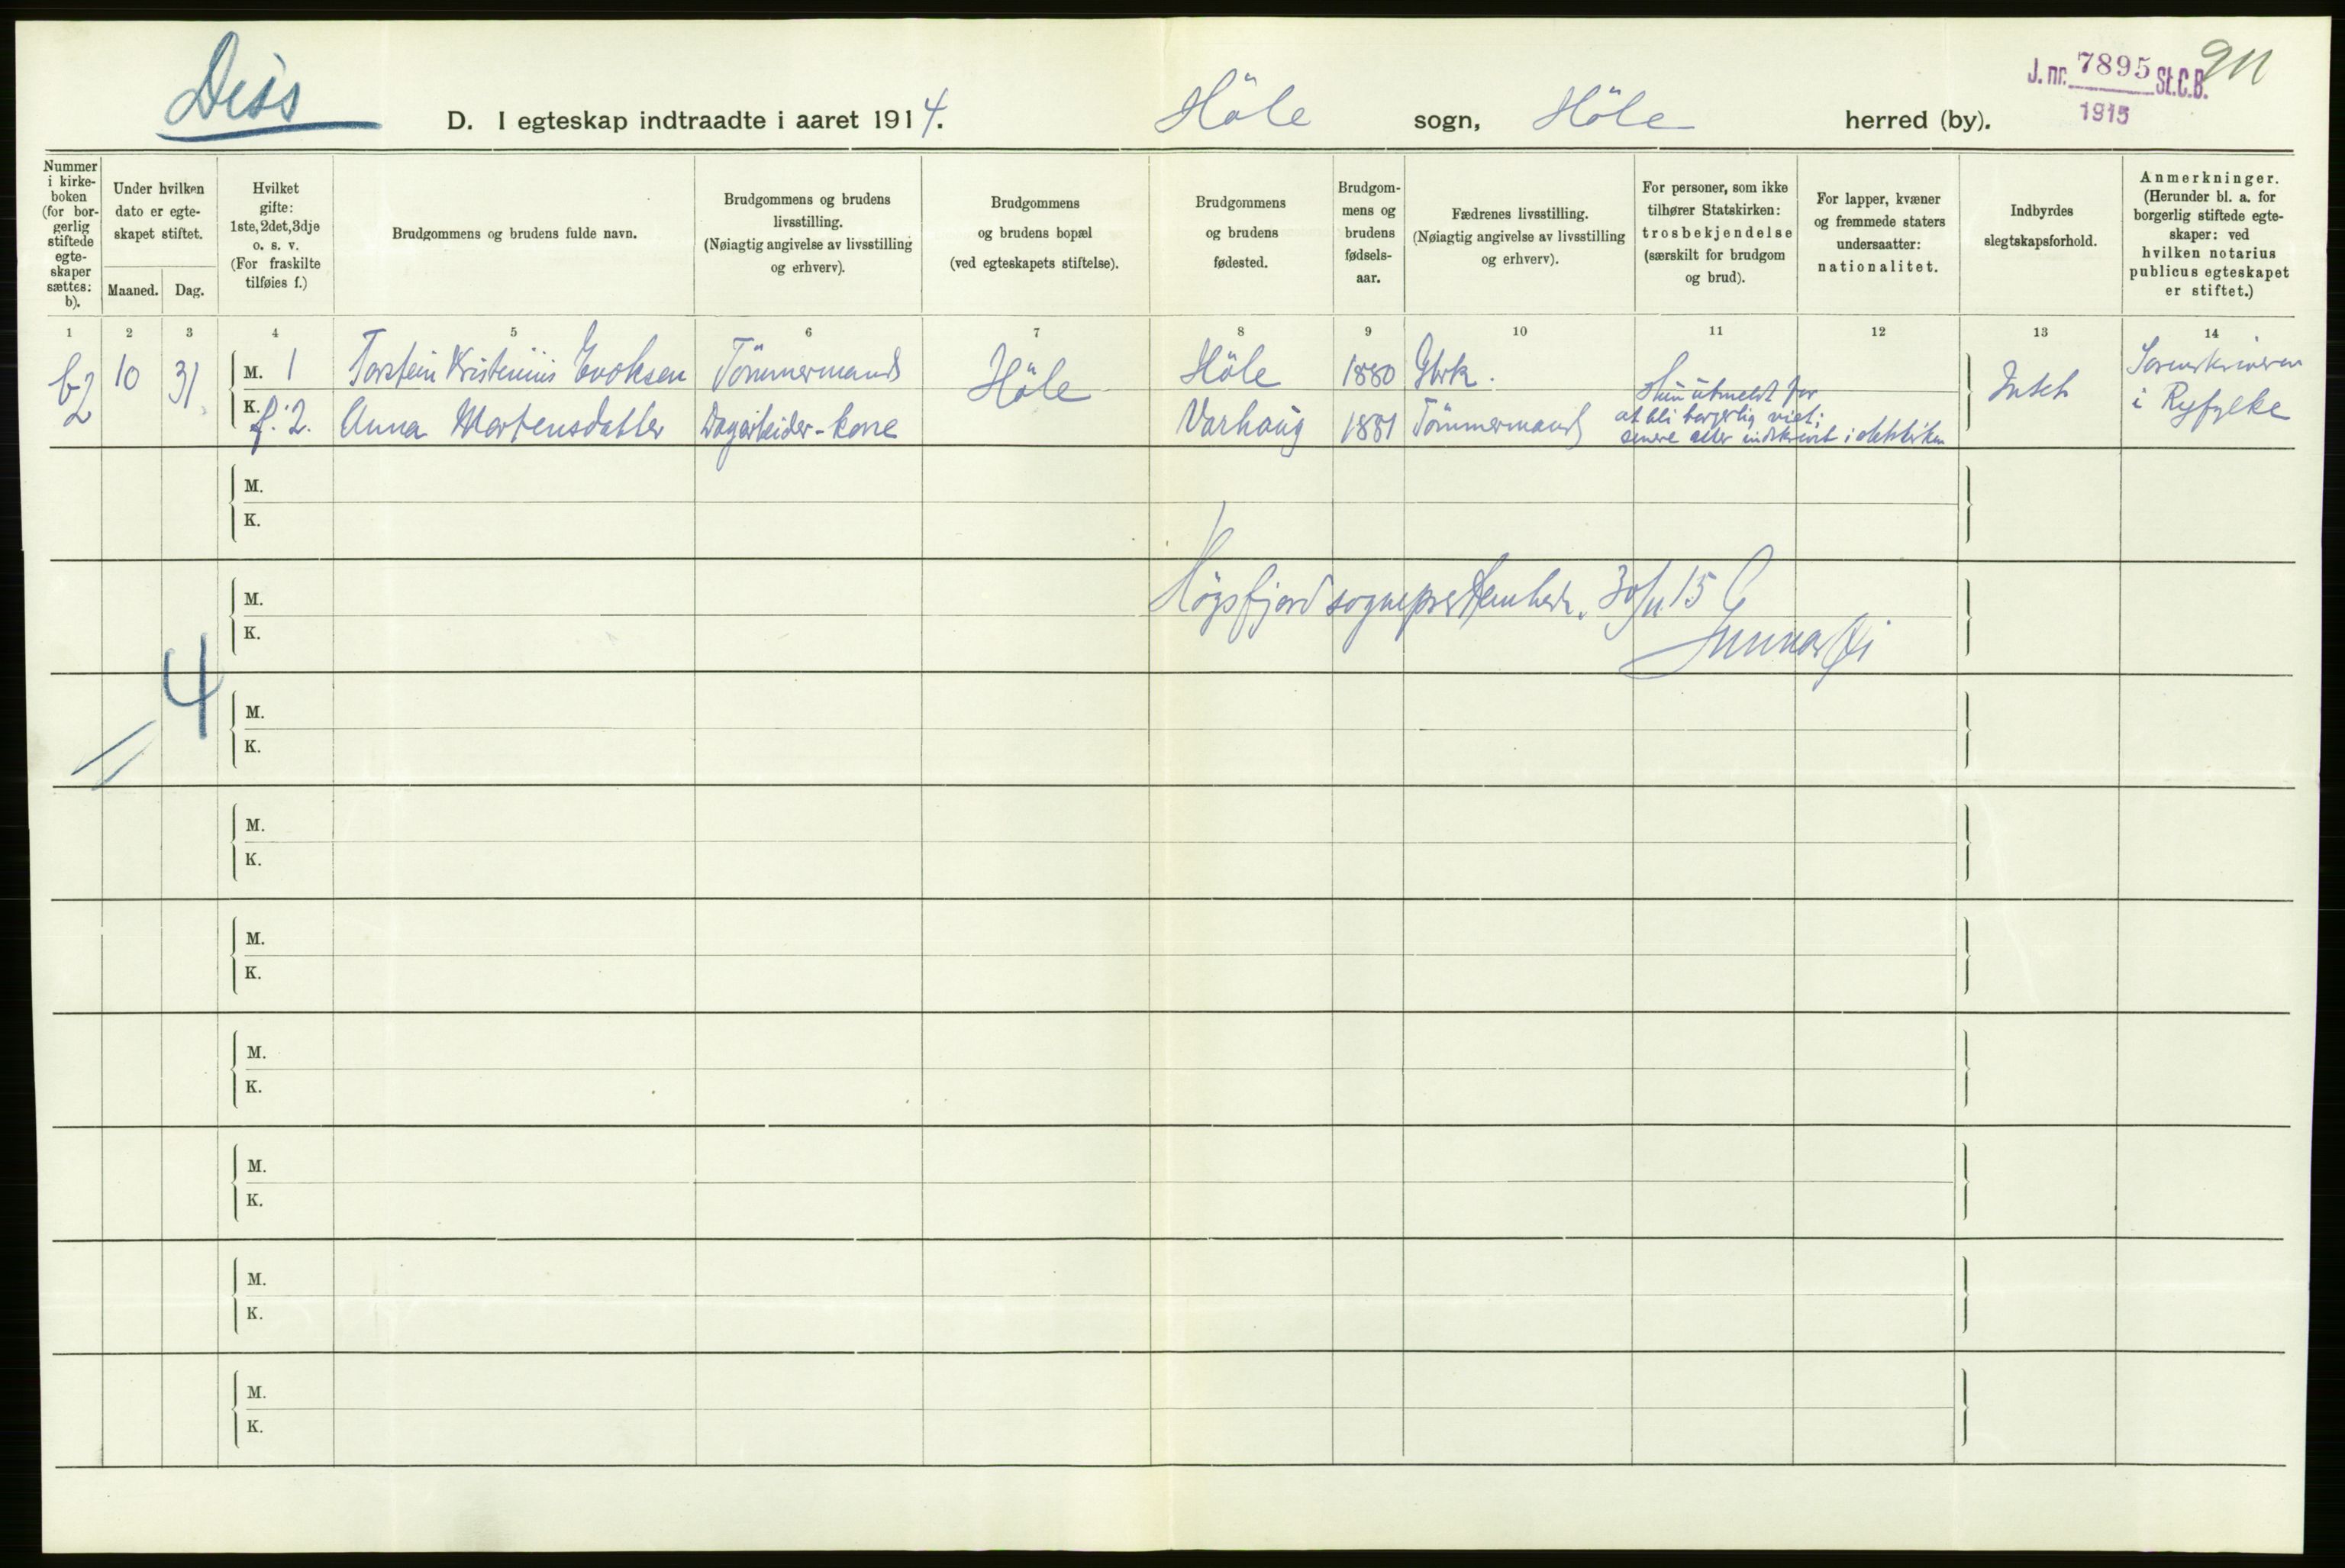 Diss
D. I egteskap indtraadte i aaret 1914. Höle sogn, Höle herred (by).
J. nr. 7895 St.C.B.
1915
911
Nummer i kirke-boken (for bor-gerlig stiftede egte-skaper sættes: b).
Under hvilken dato er egte-skapet stiftet.
Maaned. Dag.
Hvilket gifte: 1ste, 2det, 3dje o. s. v. (For fraskilte tilføies f.)
Brudgommens og brudens fulde navn.
Brudgommens og brudens livsstilling. (Nøiagtig angivelse av livsstilling og erhverv).
Brudgommens og brudens bopæl (ved egteskapets stiftelse).
Brudgommens og brudens fødested.
Brudgom-mens og brudens fødsels-aar.
Fædrenes livsstilling. (Nøiagtig angivelse av livsstilling og erhverv).
For personer, som ikke tilhører Statskirken: trosbekjendelse (særskilt for brudgom og brud).
For lapper, kvæner og fremmede staters undersaatter: nationalitet.
Indbyrdes slegtskapsforhold.
Anmerkninger. (Herunder bl. a. for borgerlig stiftede egte-skaper: ved hvilken notarius publicus egteskapet er stiftet.)
1 2 3 4 5 6 7 8 9 10 11 12 13 14
b2 10 31. M. 1 Torstein Kristenius Enoksen Tömmermand Höle Höle 1880 Gbrk. Intet Sorenskriveren
i Ryfylke
K. f. 2. Anna Martensdatter Dagarbeider-kone Varhaug 1881 Tömmermand
Hun utmeldt for
at bli borgerlig viet;
senere atter indskrevet i statskirken
M.
K.
M.
K.
Högsfjord sogneprestembede. 30/11 15
Gunnar
4
M.
K.
M.
K.
M.
K.
M.
K.
M.
K.
M.
K.
M.
K.